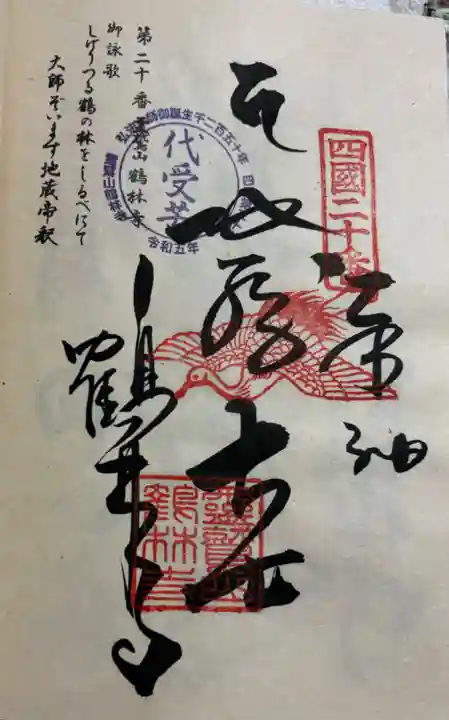 四國二十番
奉納
地蔵大士
鶴林寺
靈鷲山
鶴林寺
弘法大師御誕生千二百五十年
代受苦
令和五年
靈鷲山鶴林寺
第二十番 靈鷲山 鶴林寺
御詠歌
しげりつる鶴の林をしるべにて
大師ぞいます地蔵帝釈